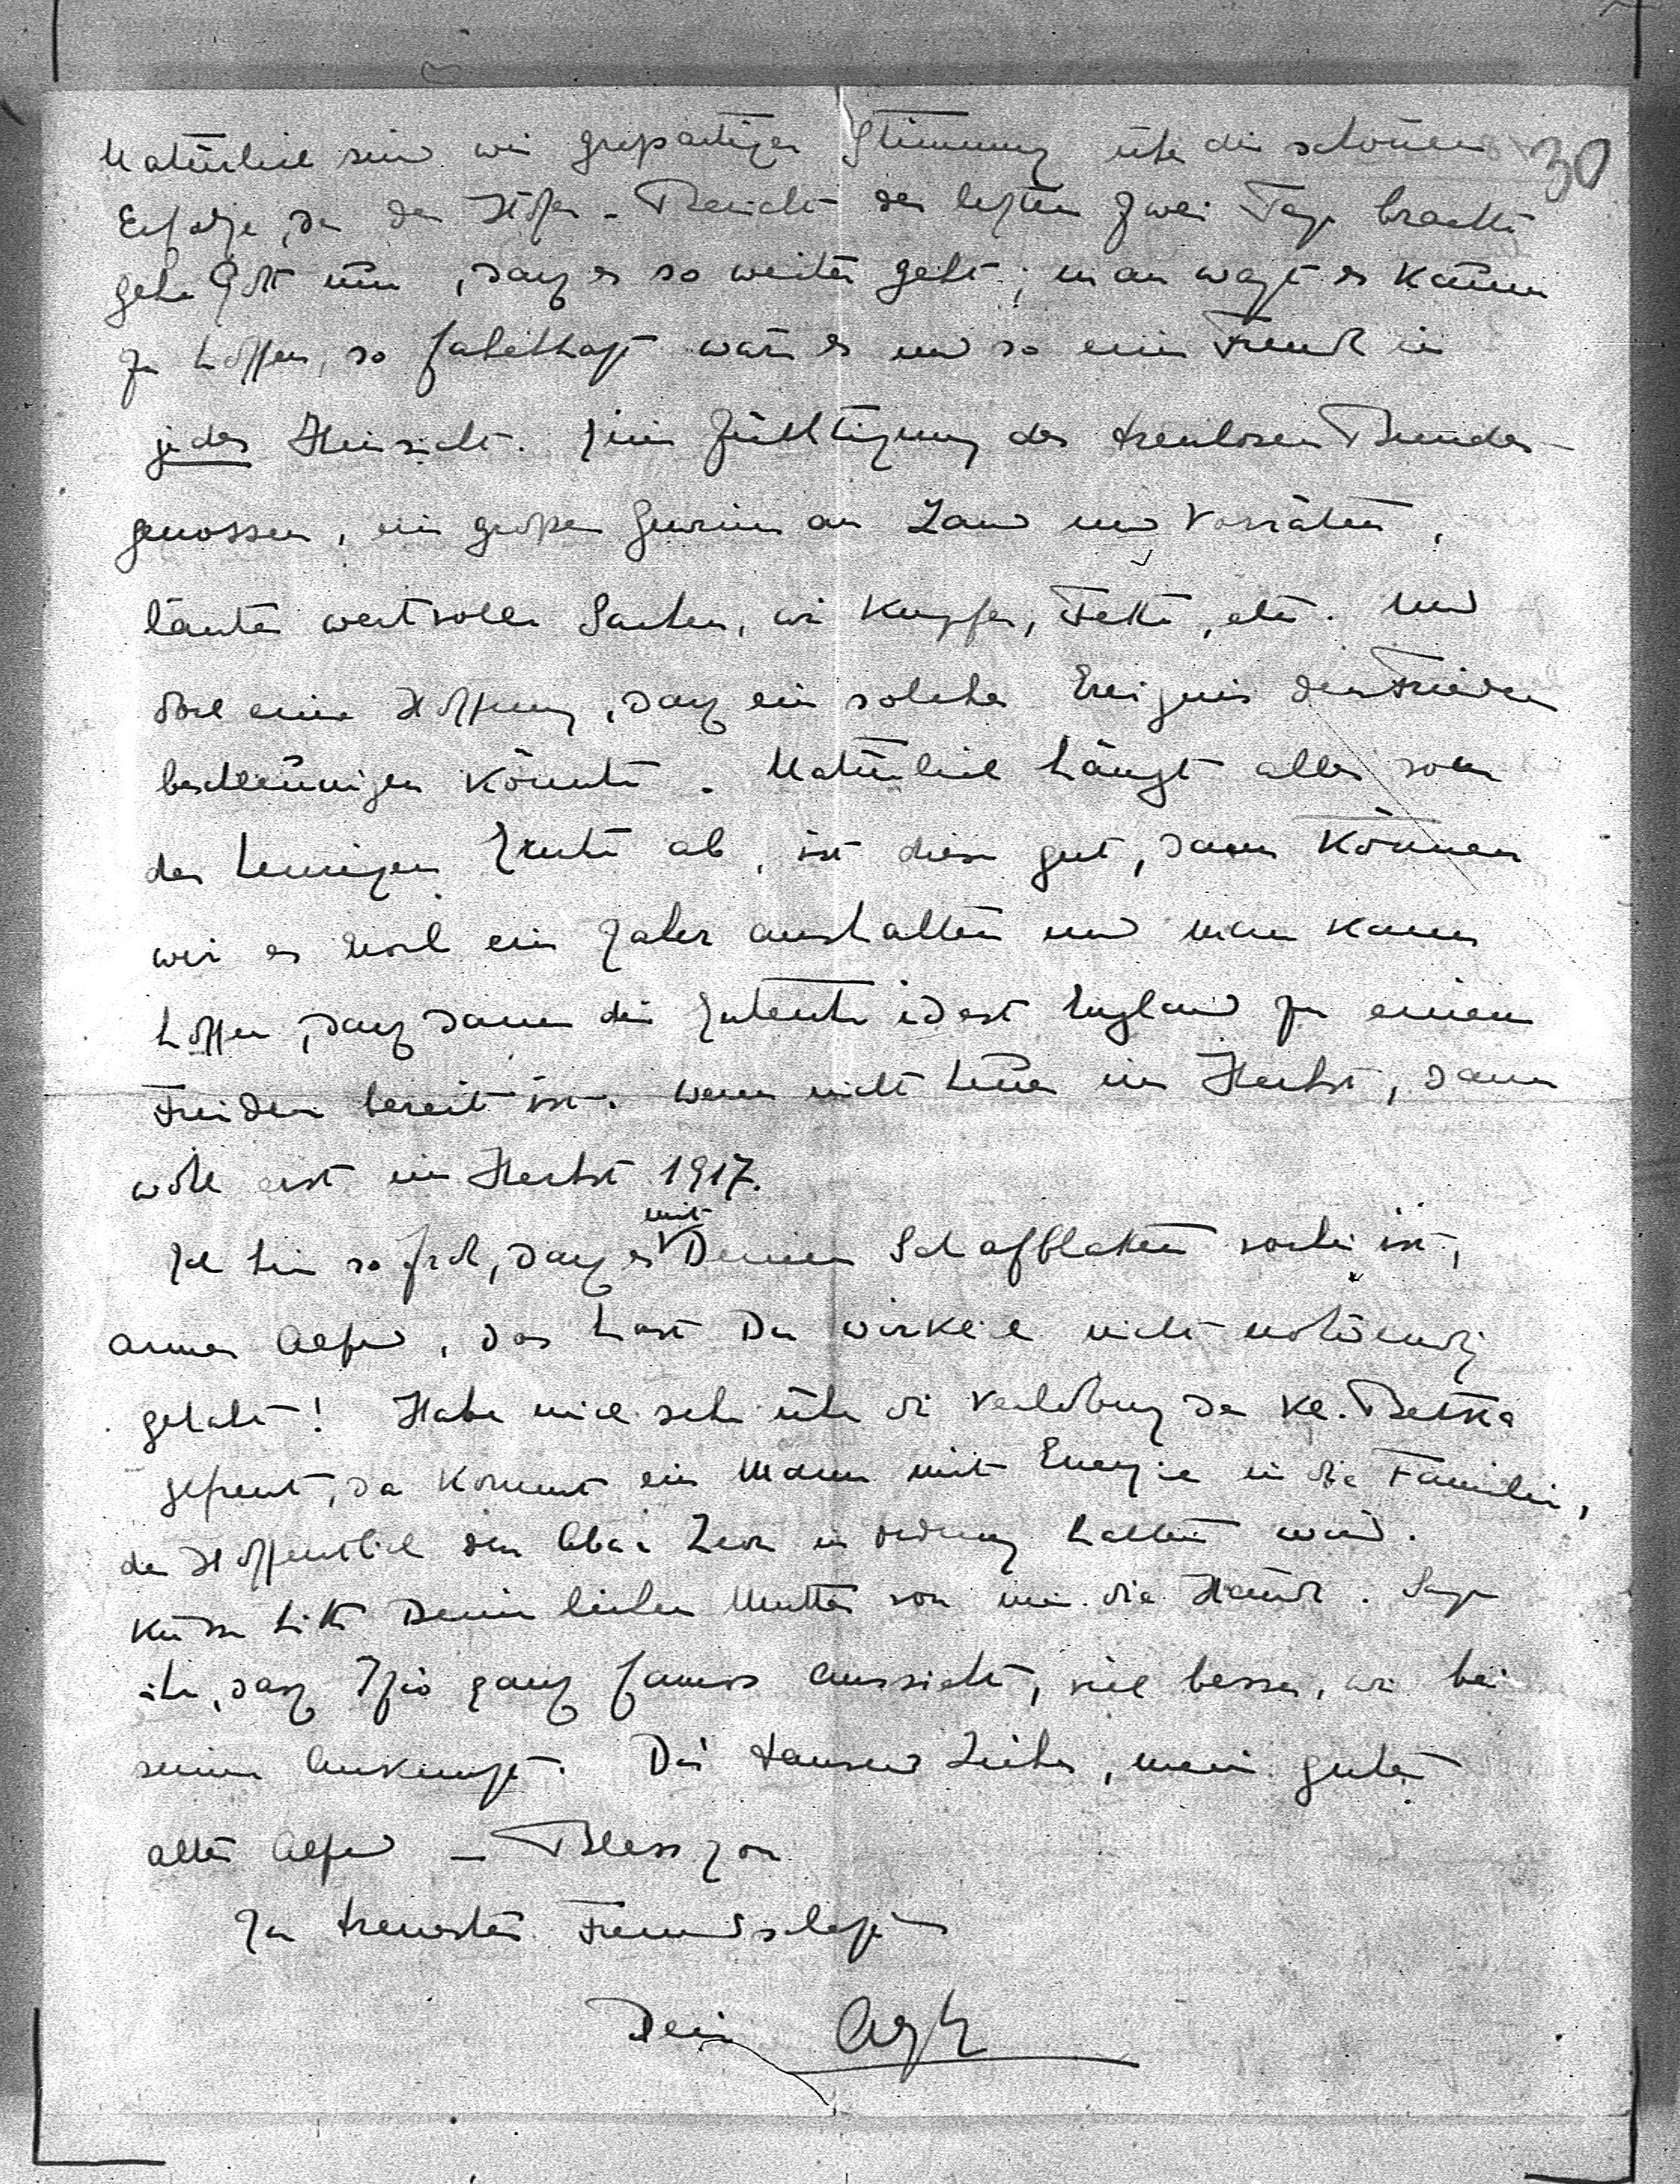 30
Natürlich sind wir grossartiger Stimmung über die schönen
Erfolge, die der Höfer-Bericht der letzten zwei Tage brachte
gebe Gott nun, dass es so weiter geht; man wagt es kaum
zu hoffen, so fabelhaft wäre es und so eine Freude in
jeder Hinsicht. Eine Züchtigung des treulosen Bundes-
genossen, ein grosser Gewinn an Land und Vorräten,
lauter wertvolle Sachen, wie Kupfer, Fette, etc. Und
doch eine Hoffnung, dass ein solches Ereignis den Frieden
beschleunigen könnte. Natürlich hängt alles von
der heurigen Ernte ab, ist diese gut, dann können
wir es noch ein Jahr aushalten und man kann
hoffen, dass dann die Entente id est England zu einem
Frieden bereit ist. Wenn nicht heuer im Herbst, dann
wohl erst im Herbst 1917.
Ich bin so froh, dass es mit Deinen Schafblattern vorbei ist,
armer Alfred, das hast Du wirklich nicht notwendig
gehabt! Habe mich sehr über die Verlobung der kl. Bettka
gefreut, da kommt ein Mann mit Energie in die Familie,
der hoffentlich den Leon in Ordnung halten wird.
Küsse bitte Deiner lieben Mutter von mir die Hände. Sage
ihr, dass ganz famos aussieht, viel besser, wie bei
seiner Ankunft. Dir tausend Liebes, mein guter
alter Alfred –
In treuester Freundschaft
Dein